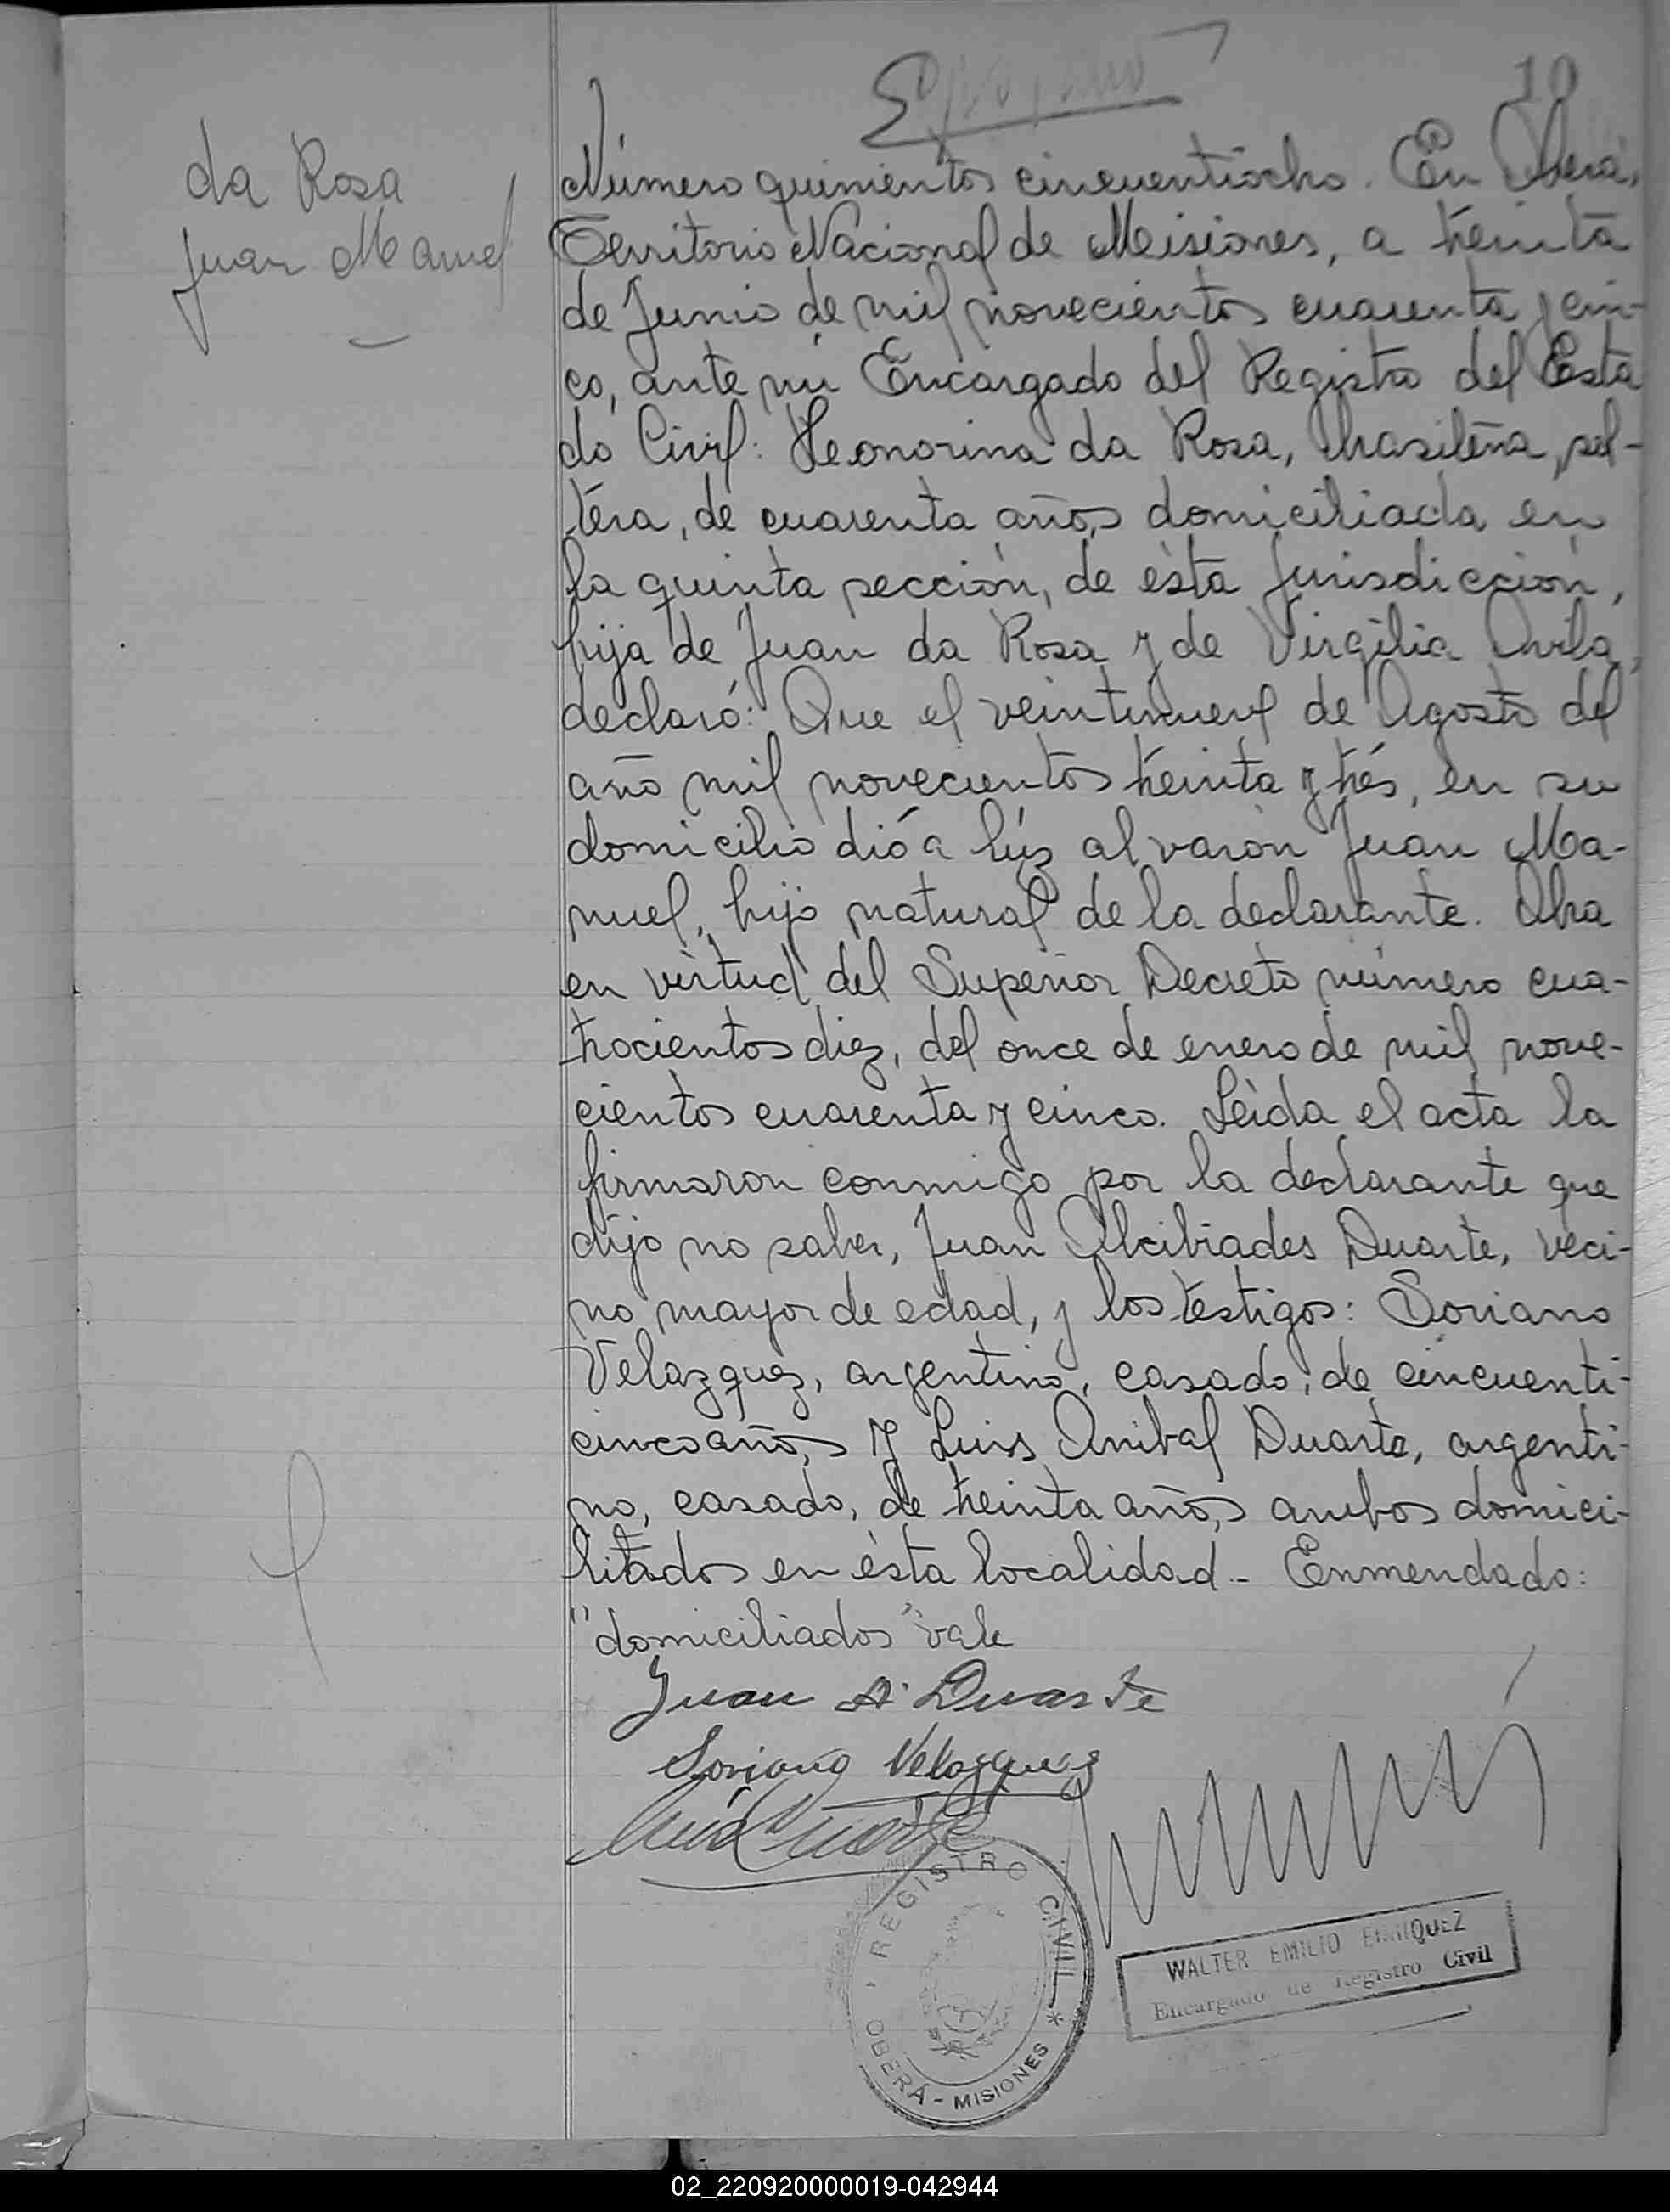 10
da Rosa
Juan Manuel
Número quinientos cincuentiocho. En Oberá,
Territorio Nacional de Misiones, a treinta
de Junio de mil novecientos cuarenta y cin-
co, ante mi Encargado del Registro del Esta
do Civil: Leonorina da Rosa, brasileña, sol-
téra, de cuarenta años, domiciliada en
la quinta sección, de ésta Jurisdicción,
hija de Juan da Rosa y de Virgilia Avila,
declaró: Que el veintinueve de Agosto del
año mil novecientos treinta y trés, en su
domicilio dió a lúz al varón Juan Ma-
nuel, hijo natural de la declarante. Obra
en virtud del Superior Decreto número cua-
trocientos diez, del once de enero de mil nove-
cientos cuarenta y cinco. Leída el acta la
firmaron conmigo por la declarante que
dijo no saber, Juan Alcibiades Duarte, veci-
no mayor de edad, y los testigos: Soriano
Velazquez, argentino, casado, de cincuenti-
cinco años, y Luis Anibal Duarte, argenti-
no, casado, de treinta años, ambos domici-
liados en ésta localidad.- Enmendado:
"domiciliados" vale
Juan A. Duarte
Soriano Velazquez
Luis Duarte
REGISTRO CIVIL * OBERÁ - MISIONES
WALTER EMILIO ENRIQUEZ
Encargado de Registro Civil
02_220920000019-042944